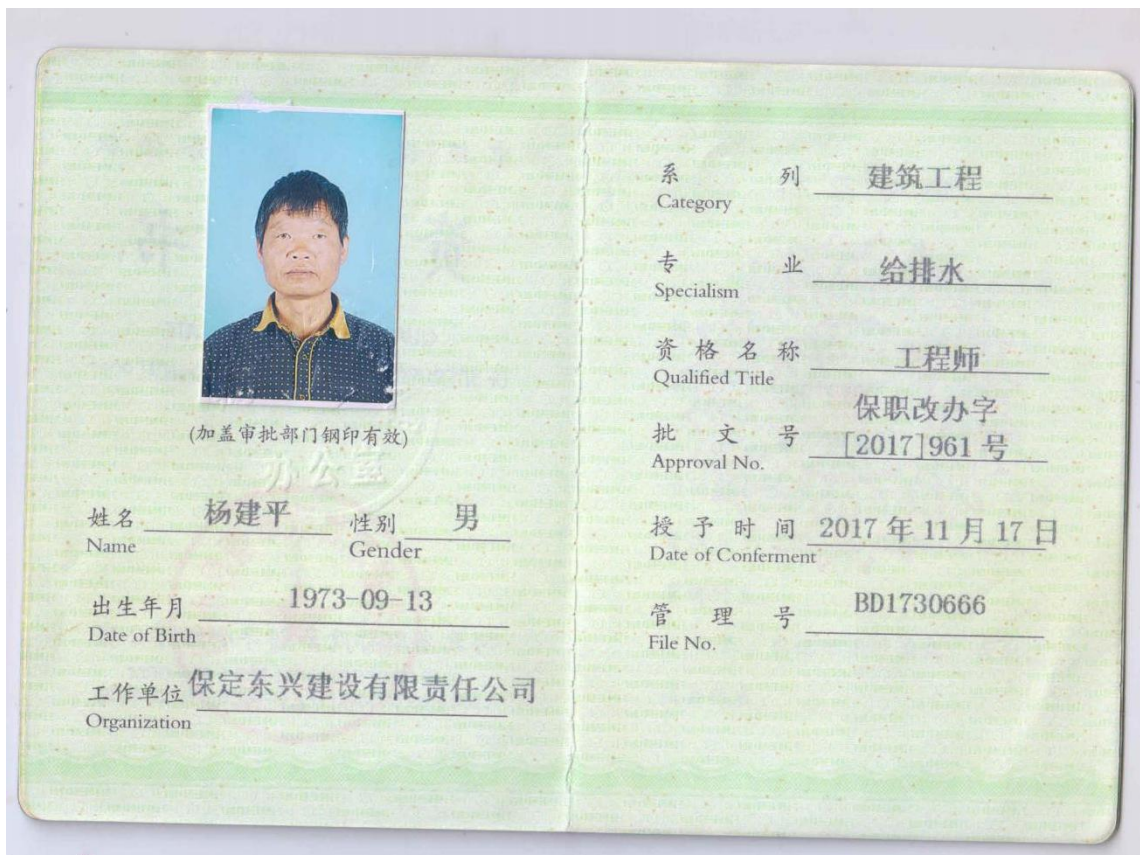 (加盖审批部门钢印有效)
办公室
姓名 杨建平 性别 男
Name Gender
出生年月 1973-09-13
Date of Birth
工作单位 保定东兴建设有限责任公司
Organization
系 列 建筑工程
Category
专 业 给排水
Specialism
资格名称 工程师
Qualified Title
保职改办字
批文号 [2017]961 号
Approval No.
授予时间 2017 年 11 月 17 日
Date of Conferment
管理号 BD1730666
File No.